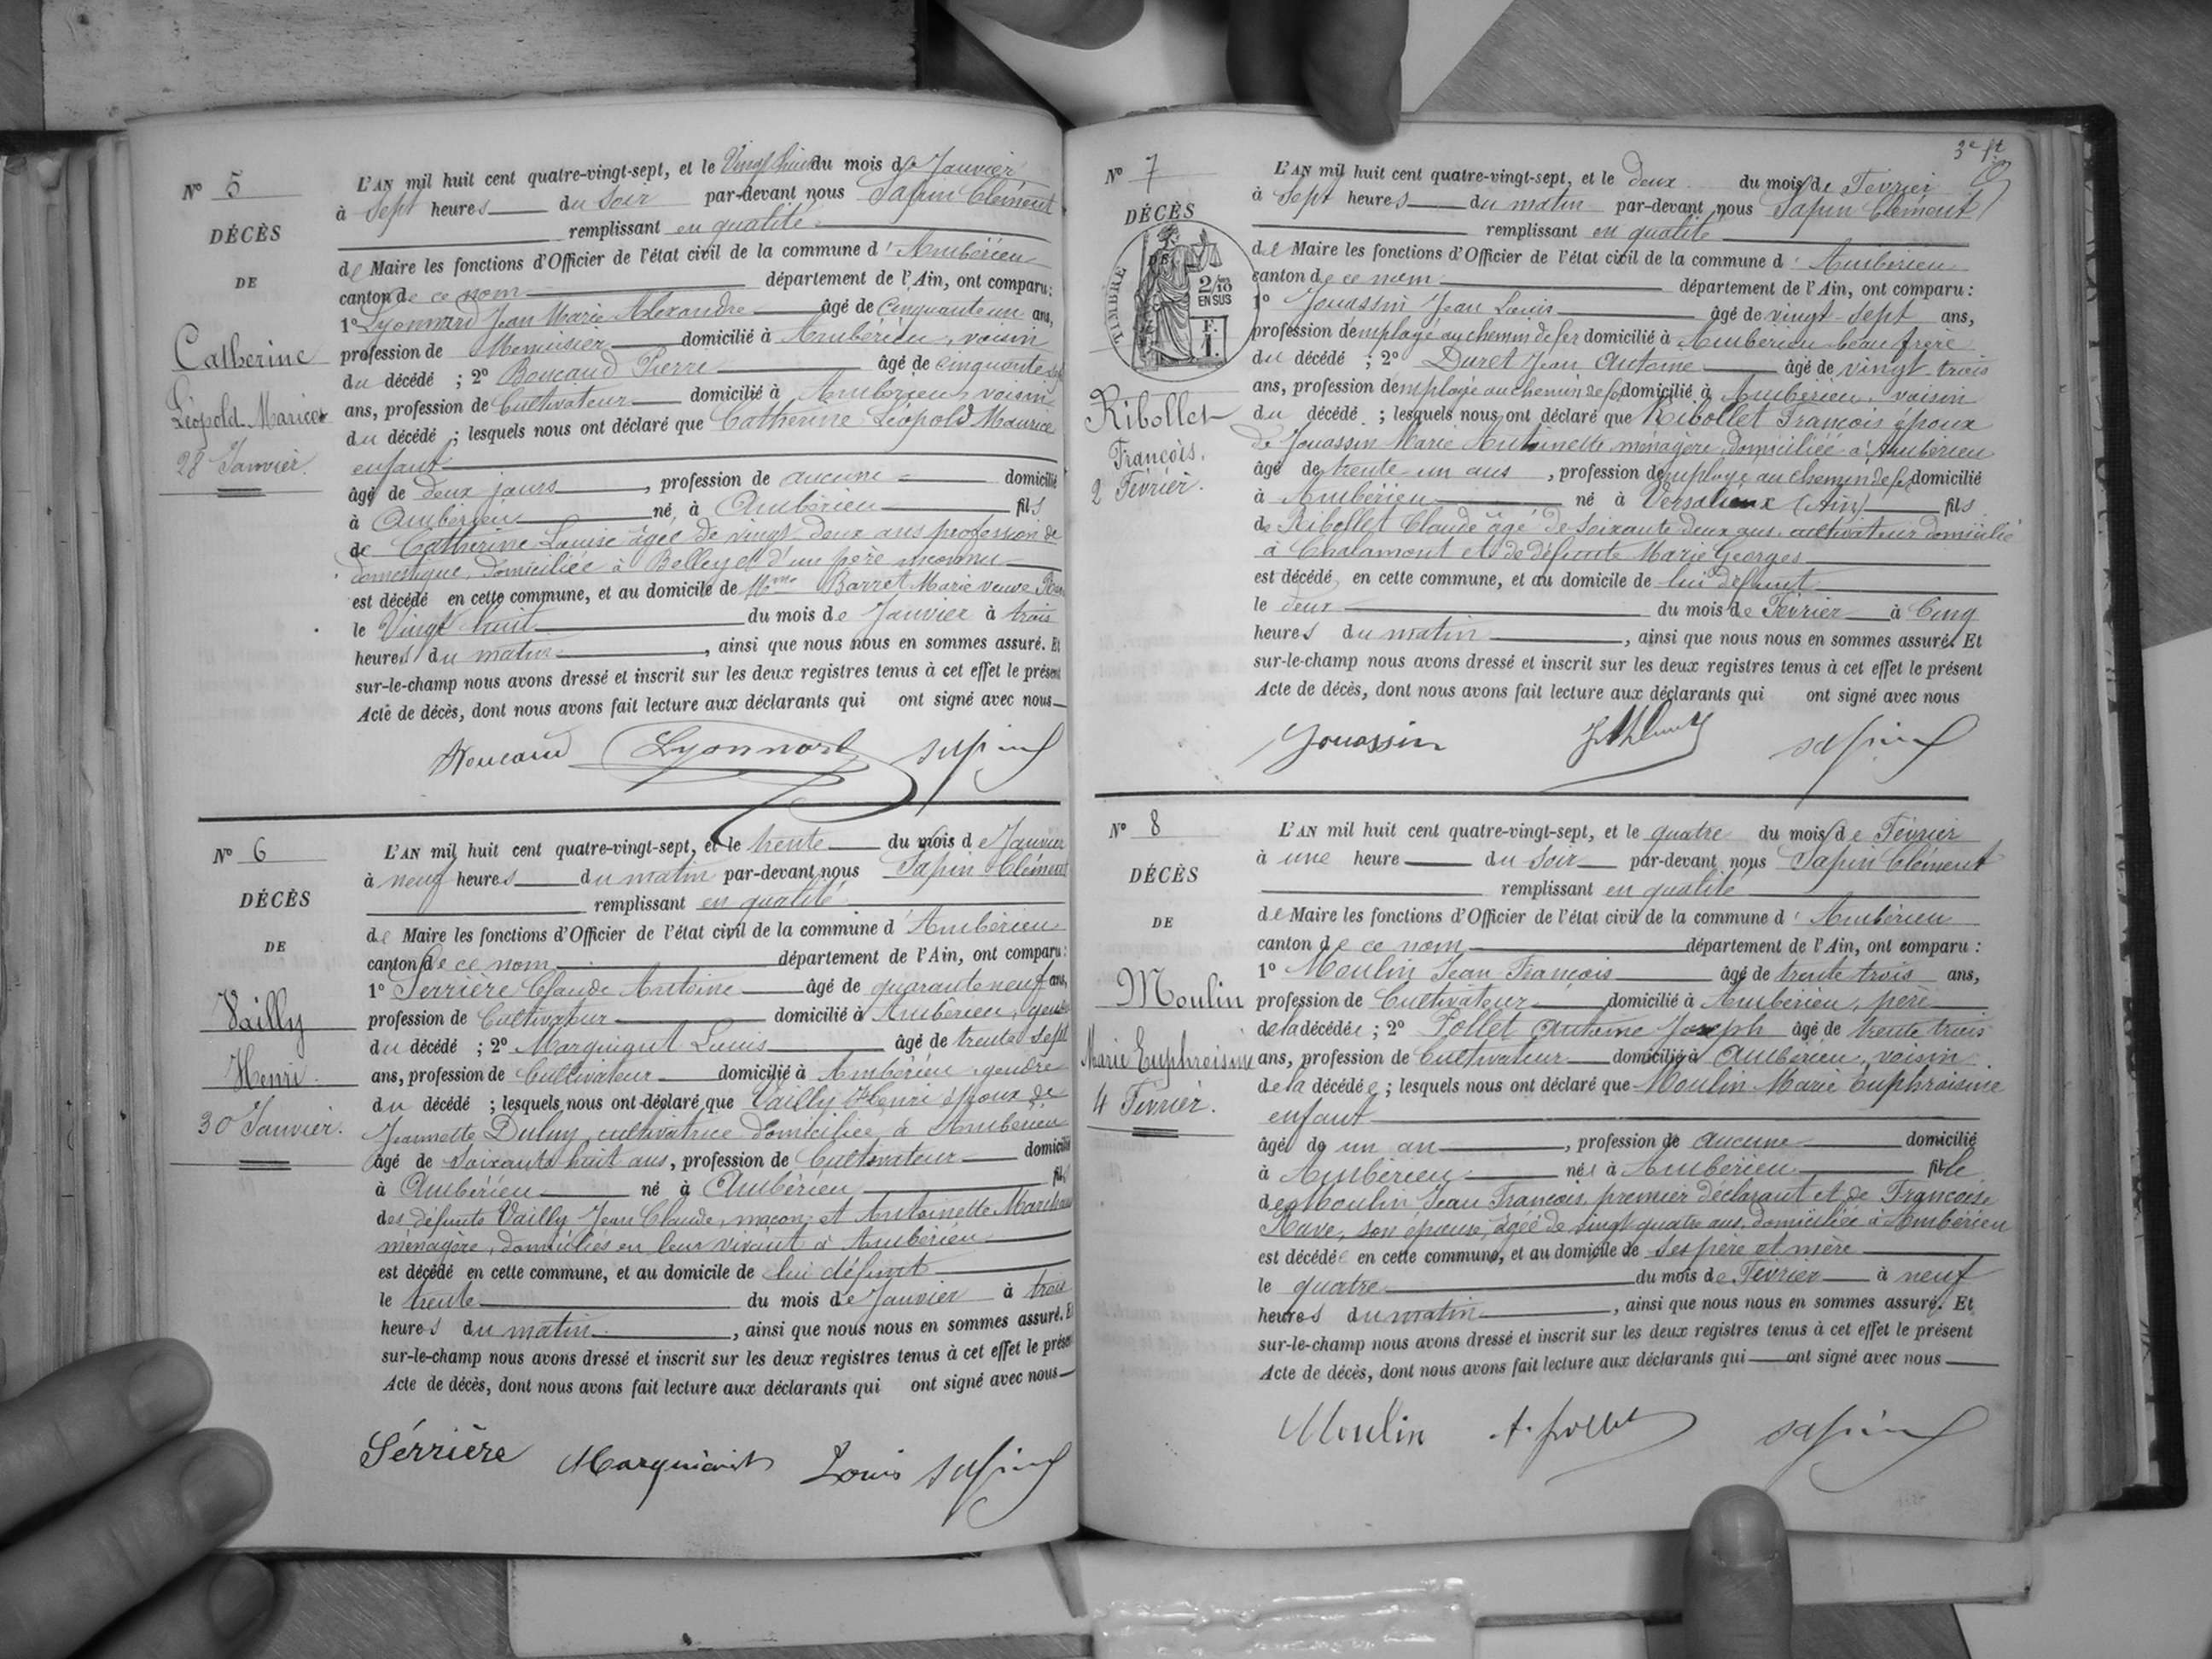 N° 5
DÉCÈS
DE
Catherine
Léopold Marice
28 Janvier.
L'AN mil huit cent quatre-vingt-sept, et le Vingt huit du mois de Janvier
à Sept heures du soir par-devant nous Sapin Clément
remplissant en qualité
de Maire les fonctions d'Officier de l'état civil de la commune d'Ambérieu
canton de ce nom département de l'Ain, ont comparu:
1° Lyonnard Jean Marie Alexandre âgé de Cinquante un ans,
profession de Menuisier domicilié à Ambérieu, voisin
du décédé ; 2° Boucaud Pierre âgé de cinquante
ans, profession de Cultivateur domicilié à Ambérieu, voisin
du décédé ; lesquels nous ont déclaré que Catherine Léopold Maurice
enfant
âgé de deux jours, profession de aucune domicilié
à Ambérieu né à Ambérieu fils
de Catherine Louise âgée de vingt deux ans profession de
domestique, domiciliée à Belley et d'un père inconnu
est décédé en cette commune, et au domicile de Mme Barret Marie veuve
le Vingt huit du mois de Janvier à trois
heures du matin, ainsi que nous nous en sommes assuré. Et
sur-le-champ nous avons dressé et inscrit sur les deux registres tenus à cet effet le présent
Acte de décès, dont nous avons fait lecture aux déclarants qui ont signé avec nous
Boucaud Lyonnard Sapin
N° 6
DÉCÈS
DE
Vailly
Henri.
30 Janvier.
L'AN mil huit cent quatre-vingt-sept, et le trente du mois de Janvier
à neuf heures du matin par-devant nous Sapin Clément
remplissant en qualité
de Maire les fonctions d'Officier de l'état civil de la commune d'Ambérieu
canton de ce nom département de l'Ain, ont comparu:
1° Serrière Claude Antoine âgé de quarante neuf ans,
profession de Cultivateur domicilié à Ambérieu, gendre
du décédé ; 2° Marguignt Louis âgé de trente sept
ans, profession de Cultivateur domicilié à Ambérieu, gendre
du décédé ; lesquels nous ont déclaré que Vailly Henri époux de
Jeannette, cultivatrice domiciliée à Ambérieu
âgé de soixante huit ans, profession de Cultivateur domicilié
à Ambérieu né à Ambérieu fils
des défunts Vailly Jean Claude, maçon, et Antoinette
ménagère, domiciliés en leur vivant à Ambérieu
est décédé en cette commune, et au domicile de lui défunt
le trente du mois de Janvier à trois
heures du matin, ainsi que nous nous en sommes assuré. Et
sur-le-champ nous avons dressé et inscrit sur les deux registres tenus à cet effet le présent
Acte de décès, dont nous avons fait lecture aux déclarants qui ont signé avec nous
Sérrière Louis Sapin
3e ft
N° 7
DÉCÈS
DE
TIMBRE
2/10
EN SUS
F.
1.
Ribollet
François.
2 Février.
L'AN mil huit cent quatre-vingt-sept, et le deux du mois de Février
à Sept heures du matin par-devant nous Sapin Clément
remplissant en qualité
de Maire les fonctions d'Officier de l'état civil de la commune d'Ambérieu
canton de ce nom département de l'Ain, ont comparu :
1° Jouassin Jean Louis âgé de vingt-sept ans,
profession d'employé au chemin de fer domicilié à Ambérieu beau frère
du décédé ; 2° Duret Jean Antoine âgé de vingt trois
ans, profession d'employé au chemin de fer domicilié à Ambérieu, voisin
du décédé ; lesquels nous ont déclaré que Ribollet François époux
de Jouassin Marie Antoinette ménagère, domiciliée à Ambérieu
âgé de trente un ans, profession d'employé au chemin de fer domicilié
à Ambérieu né à Versalieux (Ain) fils
de Ribollet Claude âgé de soixante deux ans, cultivateur domicilié
à Chalamont et de défunte Marie Georges
est décédé en cette commune, et au domicile de lui défunt
le deux du mois de Février à Cinq
heures du matin, ainsi que nous nous en sommes assuré. Et
sur-le-champ nous avons dressé et inscrit sur les deux registres tenus à cet effet le présent
Acte de décès, dont nous avons fait lecture aux déclarants qui ont signé avec nous
Jouassin Sapin
N° 8
DÉCÈS
DE
Moulin
Marie Euphroisine
4 Février.
L'AN mil huit cent quatre-vingt-sept, et le quatre du mois de Février
à une heure du soir par-devant nous Sapin Clément
remplissant en qualité
de Maire les fonctions d'Officier de l'état civil de la commune d'Ambérieu
canton de ce nom département de l'Ain, ont comparu :
1° Moulin Jean François âgé de trente trois ans,
profession de Cultivateur domicilié à Ambérieu, père
de la décédée ; 2° Pollet Antoine Joseph âgé de trente trois
ans, profession de Cultivateur domicilié à Ambérieu, voisin
de la décédée ; lesquels nous ont déclaré que Moulin Marie Euphroisine
enfant
âgé de un an, profession de aucune domicilié
à Ambérieu née à Ambérieu fille
de Moulin Jean François premier déclarant et de Françoise
Rave, son épouse, âgée de vingt quatre ans, domiciliée à Ambérieu
est décédée en cette commune, et au domicile de ses père et mère
le quatre du mois de Février à neuf
heures du matin, ainsi que nous nous en sommes assuré. Et
sur-le-champ nous avons dressé et inscrit sur les deux registres tenus à cet effet le présent
Acte de décès, dont nous avons fait lecture aux déclarants qui ont signé avec nous
Moulin A. Pollet Sapin